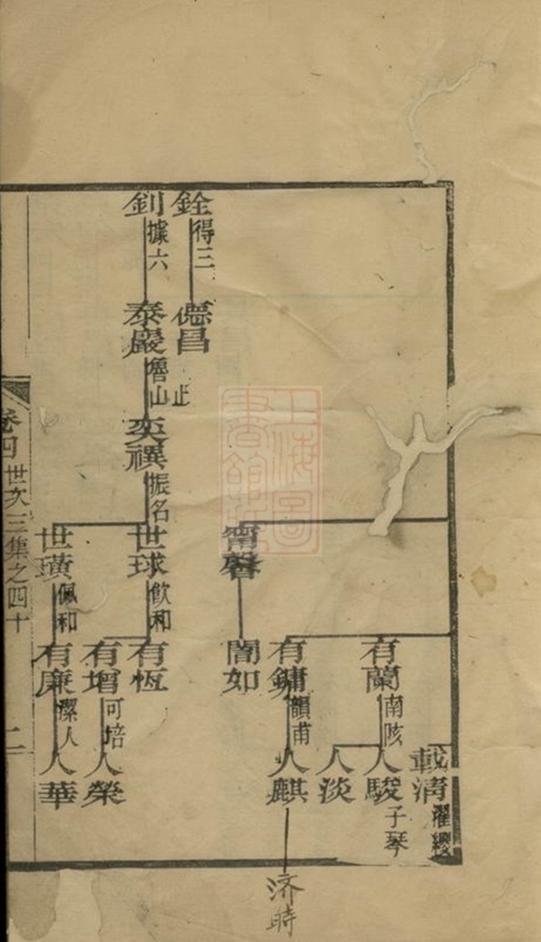 載清 濯纓
有蘭 南陔 人駿 子琴
人淡
有鏞 韻甫 人麒 济時
甯馨 闇如
銓 得三 德昌 止
釗 據六 泰巖 魯山 奕禩 振名 世球 飲和 有恆
有增 可培 人榮
世璜 佩和 有廉 潔人 人華
卷四 世次三集之四十 二
上海圖書館藏